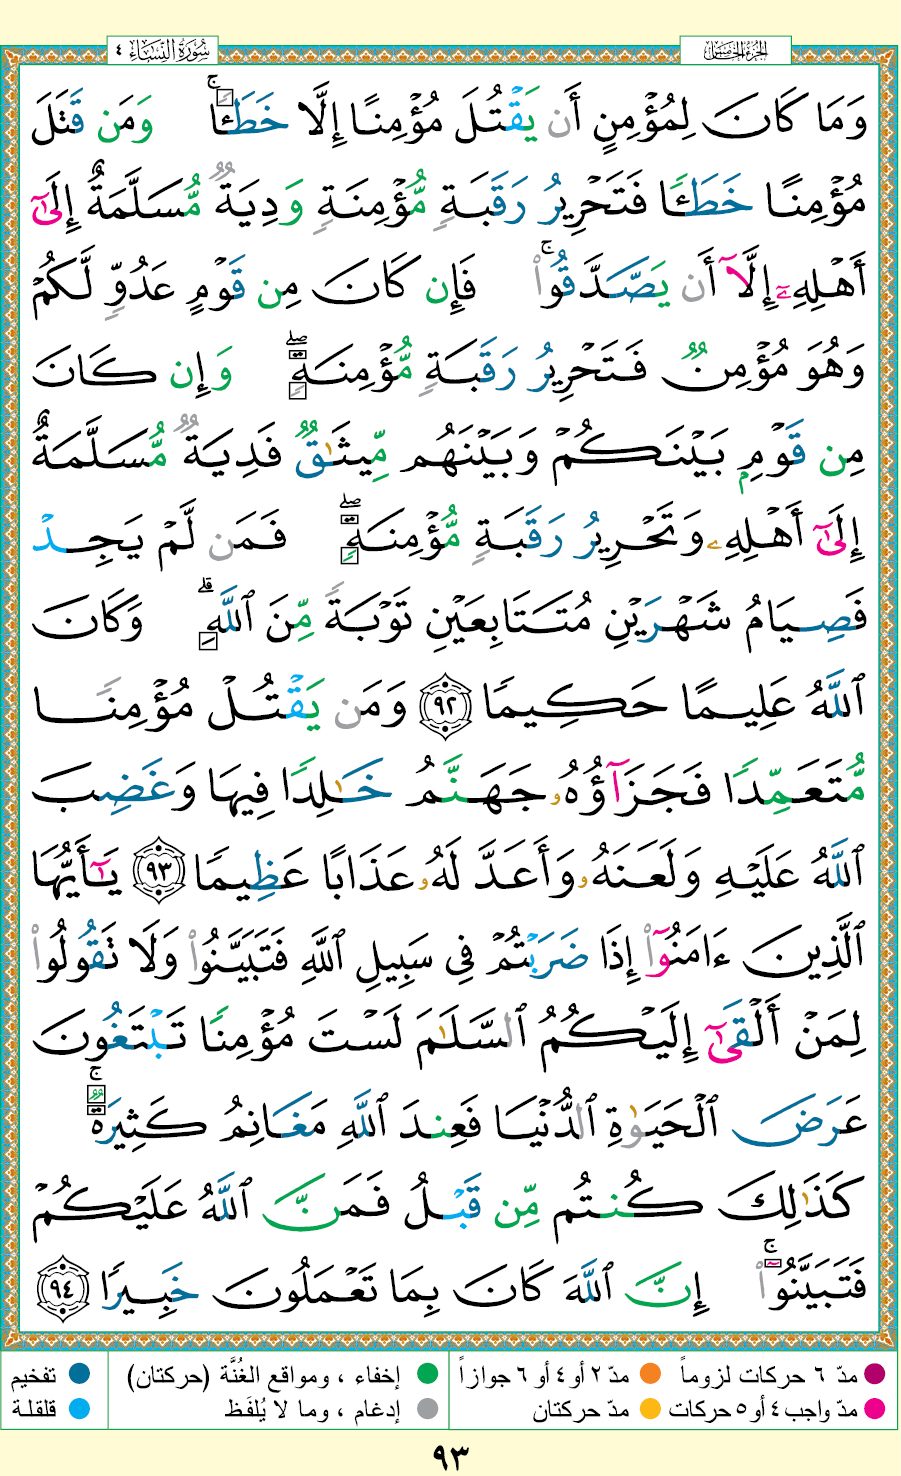 سُورَةُ النِّسَاء ٤
الجزء الخامس
وَمَا كَانَ لِمُؤْمِنٍ أَن يَقْتُلَ مُؤْمِنًا إِلَّا خَطَـًٔا ۚ وَمَن قَتَلَ
مُؤْمِنًا خَطَـًٔا فَتَحْرِيرُ رَقَبَةٍ مُّؤْمِنَةٍ وَدِيَةٌ مُّسَلَّمَةٌ إِلَىٰٓ
أَهْلِهِۦٓ إِلَّآ أَن يَصَّدَّقُوا۟ ۚ فَإِن كَانَ مِن قَوْمٍ عَدُوٍّ لَّكُمْ
وَهُوَ مُؤْمِنٌ فَتَحْرِيرُ رَقَبَةٍ مُّؤْمِنَةٍ ۖ وَإِن كَانَ
مِن قَوْمٍۭ بَيْنَكُمْ وَبَيْنَهُم مِّيثَـٰقٌ فَدِيَةٌ مُّسَلَّمَةٌ
إِلَىٰٓ أَهْلِهِۦ وَتَحْرِيرُ رَقَبَةٍ مُّؤْمِنَةٍ ۖ فَمَن لَّمْ يَجِدْ
فَصِيَامُ شَهْرَيْنِ مُتَتَابِعَيْنِ تَوْبَةً مِّنَ ٱللَّهِ ۗ وَكَانَ
ٱللَّهُ عَلِيمًا حَكِيمًا ٩٢ وَمَن يَقْتُلْ مُؤْمِنًا
مُّتَعَمِّدًا فَجَزَآؤُهُۥ جَهَنَّمُ خَـٰلِدًا فِيهَا وَغَضِبَ
ٱللَّهُ عَلَيْهِ وَلَعَنَهُۥ وَأَعَدَّ لَهُۥ عَذَابًا عَظِيمًا ٩٣ يَـٰٓأَيُّهَا
ٱلَّذِينَ ءَامَنُوٓا۟ إِذَا ضَرَبْتُمْ فِى سَبِيلِ ٱللَّهِ فَتَبَيَّنُوا۟ وَلَا تَقُولُوا۟
لِمَنْ أَلْقَىٰٓ إِلَيْكُمُ ٱلسَّلَـٰمَ لَسْتَ مُؤْمِنًا تَبْتَغُونَ
عَرَضَ ٱلْحَيَوٰةِ ٱلدُّنْيَا فَعِندَ ٱللَّهِ مَغَانِمُ كَثِيرَةٌ ۚ
كَذَٰلِكَ كُنتُم مِّن قَبْلُ فَمَنَّ ٱللَّهُ عَلَيْكُمْ
فَتَبَيَّنُوٓا۟ ۚ إِنَّ ٱللَّهَ كَانَ بِمَا تَعْمَلُونَ خَبِيرًا ٩٤
مدّ ٦ حركات لزوماً مدّ ٢ أو ٤ أو ٦ جوازاً إخفاء ، ومواقع الغُنَّة (حركتان) تفخيم
مدّ واجب ٤ أو ٥ حركات مدّ حركتان إدغام ، وما لا يُلفَظ قلقلة
٩٣